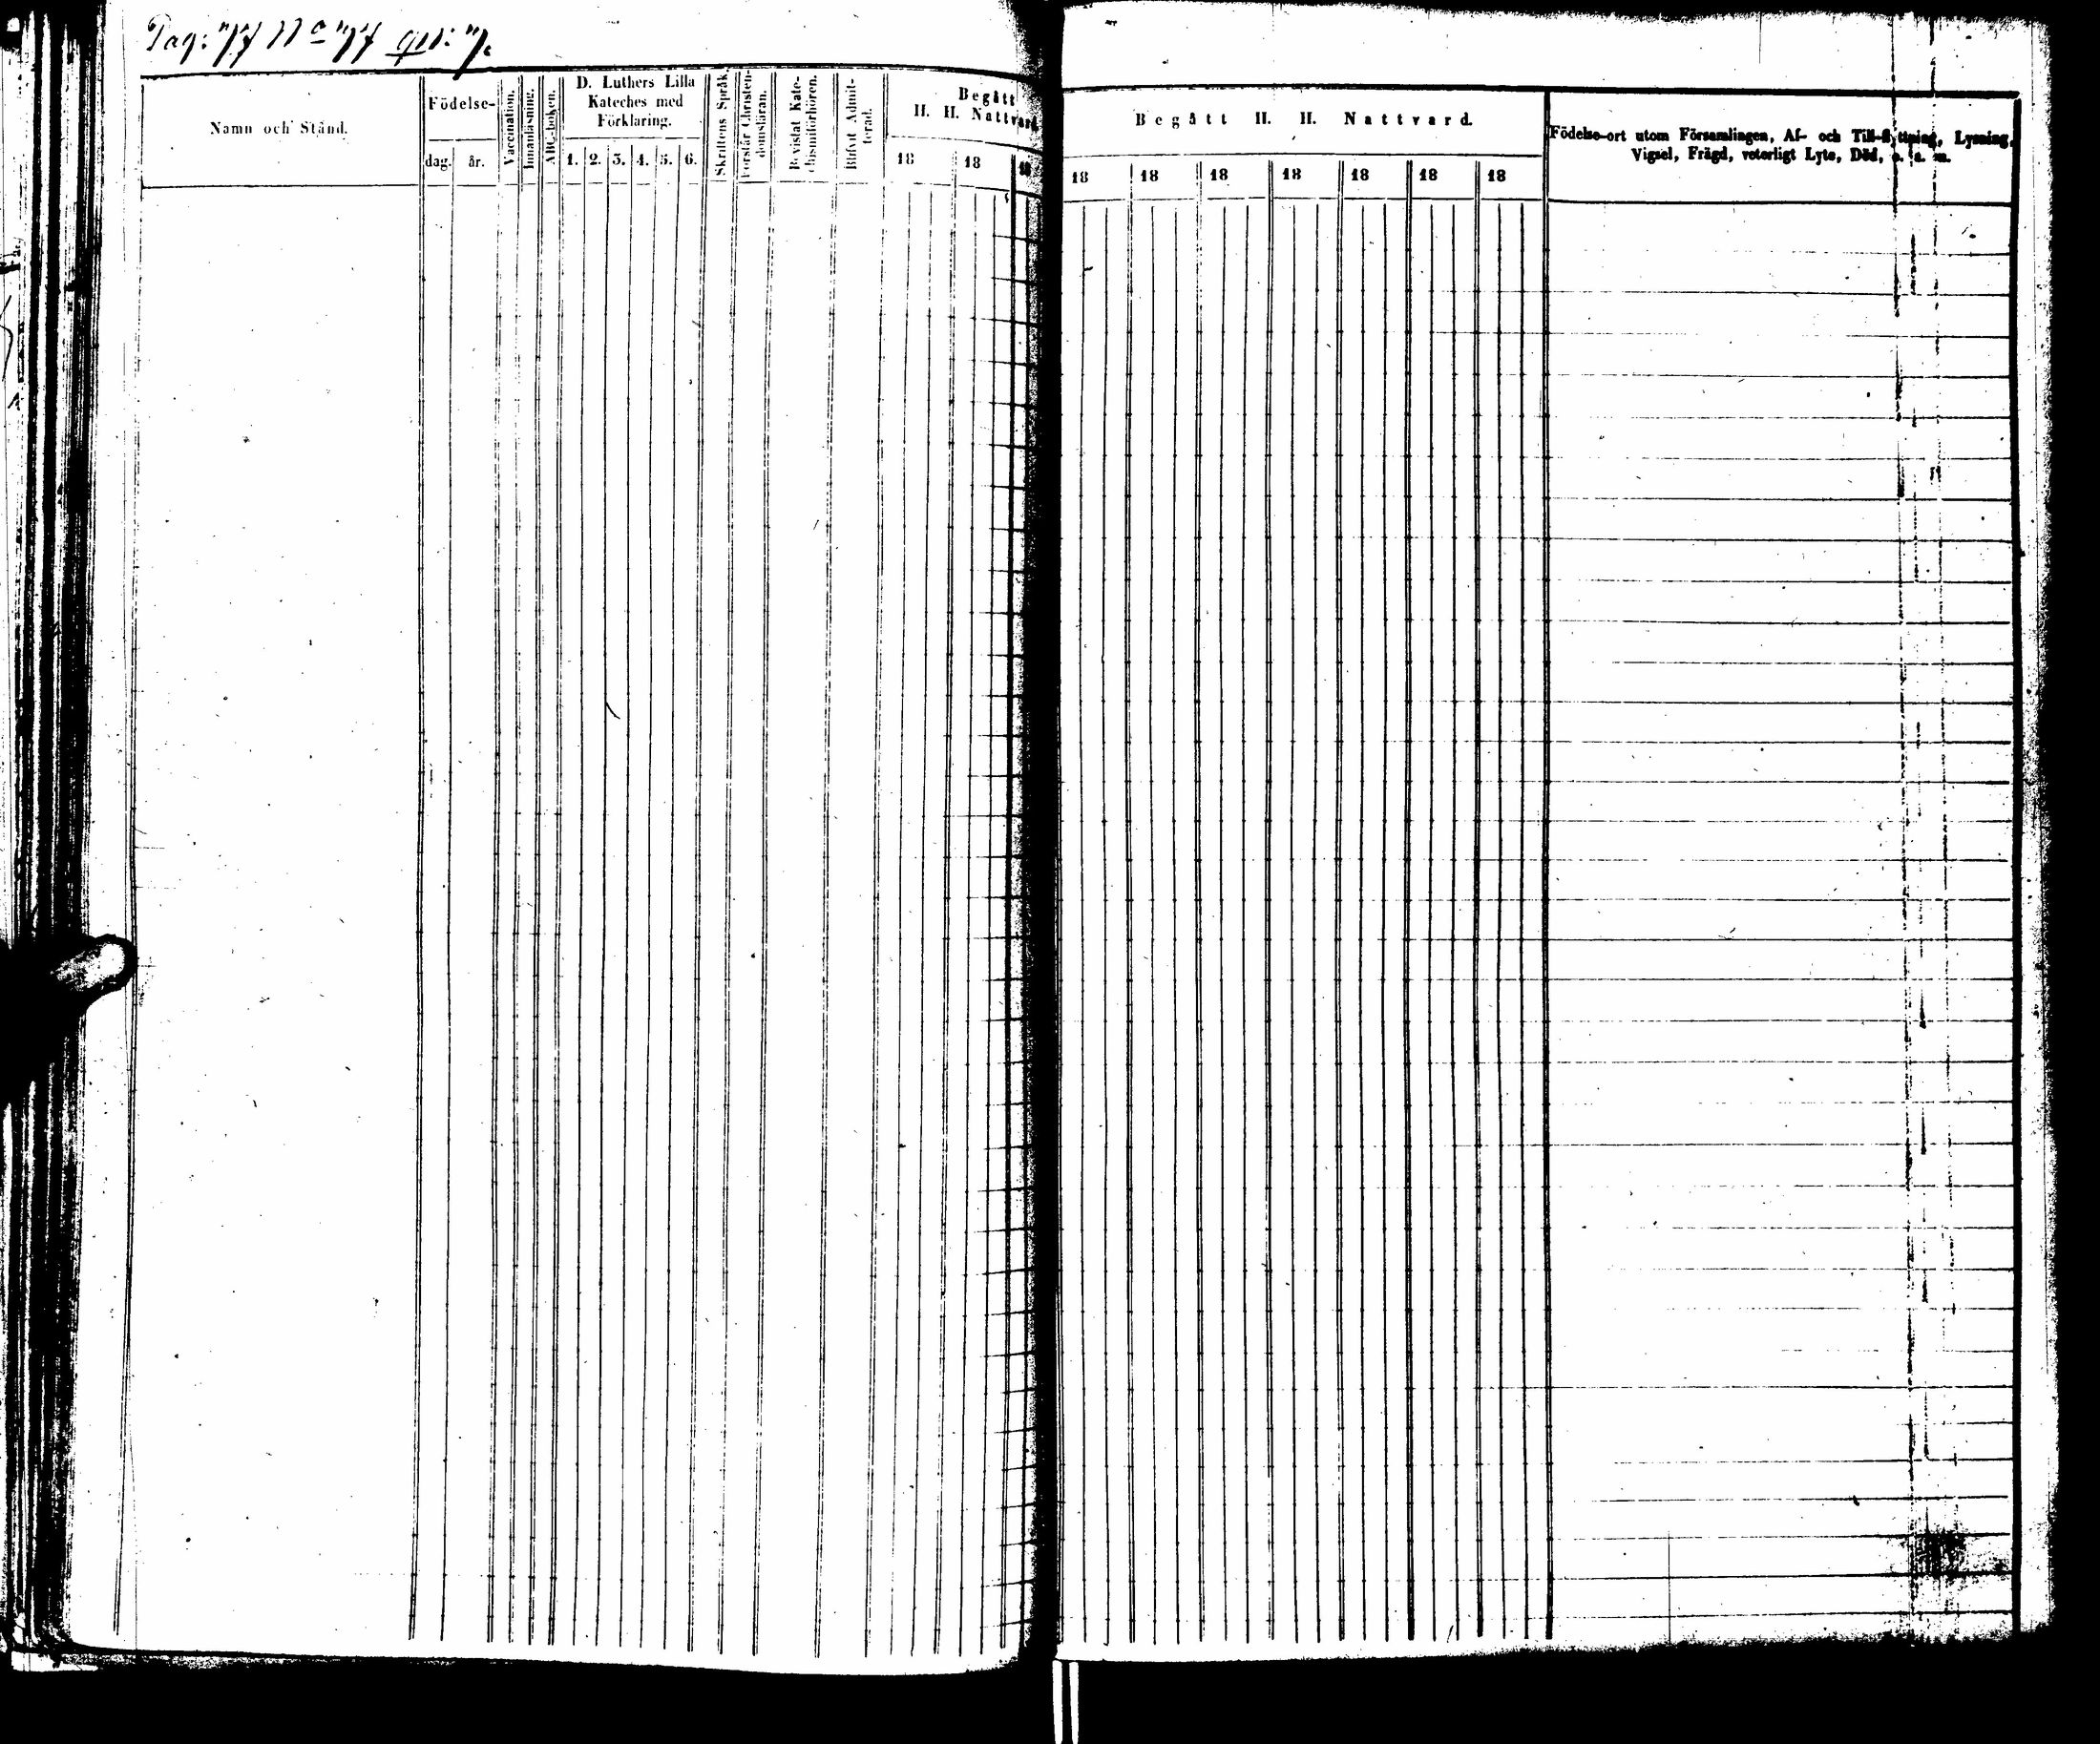 Pag: 77 No 77
Namn och Stånd.
Födelse-
dag. år.
Vaccination.
Innanläsning.
ABC-boken.
D. Luthers Lilla
Kateches med
Förklaring.
1. 2. 3. 4. 5. 6.
Skriftens Språk.
Förstår Christen-
domsläran.
Bevistat Kate-
chismiförhören.
Blifvit Admit-
terad.
Begått
H. H. Nattvard
18 18 18
Begått H. H. Nattvard.
18 18 18 18 18 18 18
Födelse-ort utom Församlingen, Af- och Till-flyttning, Lysning,
Vigsel, Frägd, veterligt Lyte, Död, o. s. m.